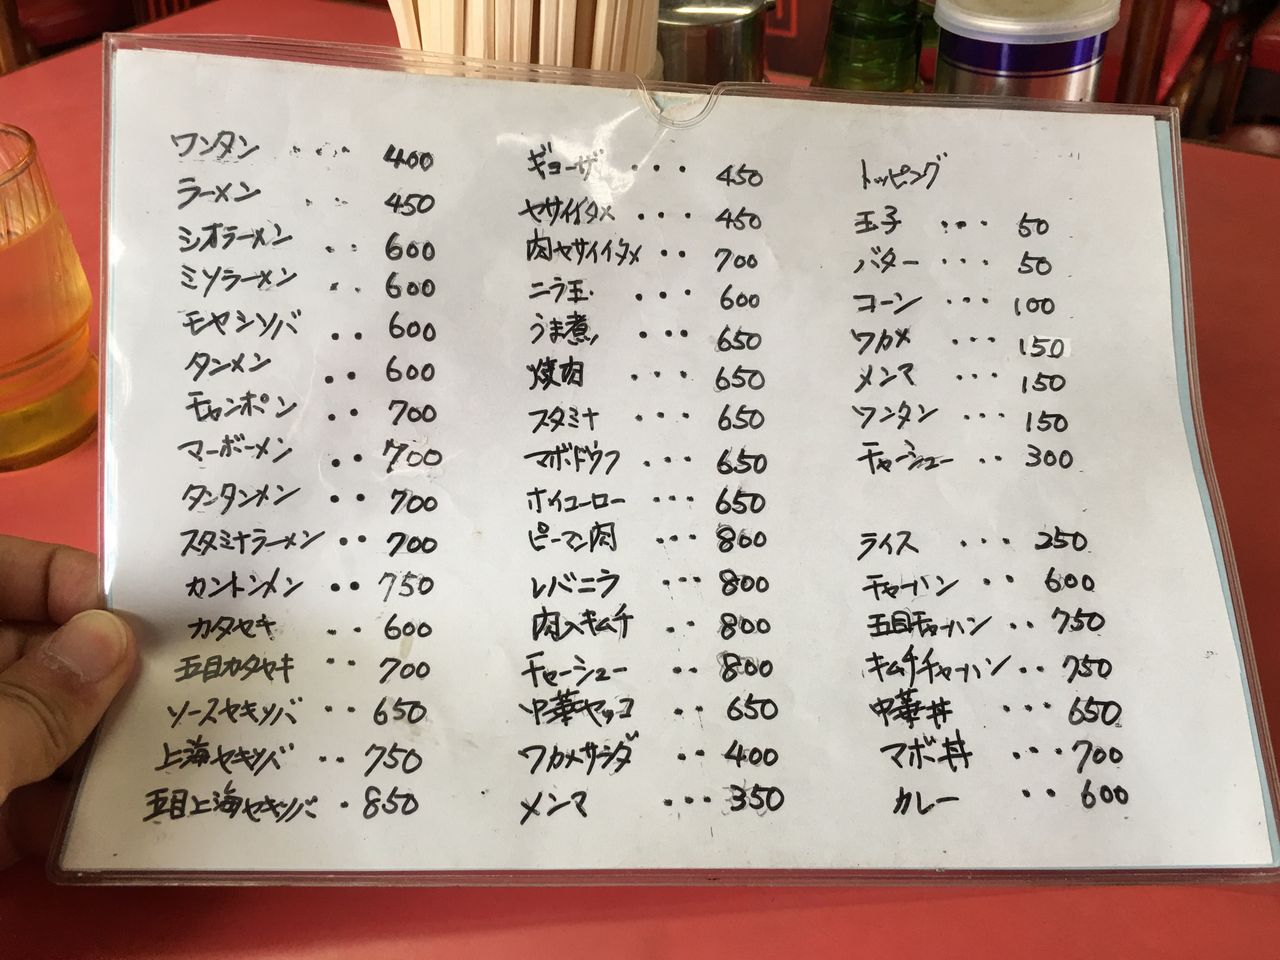 ワンタン ・・・・ 400
ラーメン ・・ 450
シオラーメン ・・ 600
ミソラーメン ・・ 600
モヤシソバ ・・ 600
タンメン ・・ 600
チャンポン ・・ 700
マーボーメン ・・ 700
タンタンメン ・・ 700
スタミナラーメン ・・ 700
カントンメン ・・ 750
カタヤキ ・・ 600
五目カタヤキ ・・ 700
ソースヤキソバ ・・ 650
上海ヤキソバ ・・ 750
五目上海ヤキソバ ・ 850
ギョーザ ・・・ 450
ヤサイイタメ ・・・ 450
肉ヤサイイタメ ・・ 700
ニラ玉 ・・・ 600
うま煮 ・・・ 650
焼肉 ・・・ 650
スタミナ ・・・ 650
マボドウフ ・・・ 650
ホイコーロー ・・・ 650
ピーマン肉 ・・・ 800
レバニラ ・・・ 800
肉入キムチ ・・ 800
チャーシュー ・・ 800
中華ヤッコ ・・ 650
ワカメサラダ ・・ 400
メンマ ・・・ 350
トッピング
玉子 ・・・ 50
バター ・・・ 50
コーン ・・・ 100
ワカメ ・・・ 150
メンマ ・・・ 150
ワンタン ・・・ 150
チャーシュー ・・ 300
ライス ・・・ 250
チャーハン ・・ 600
五目チャーハン ・・ 750
キムチチャーハン ・・ 750
中華丼 ・・・ 650
マボ丼 ・・・ 700
カレー ・・ 600